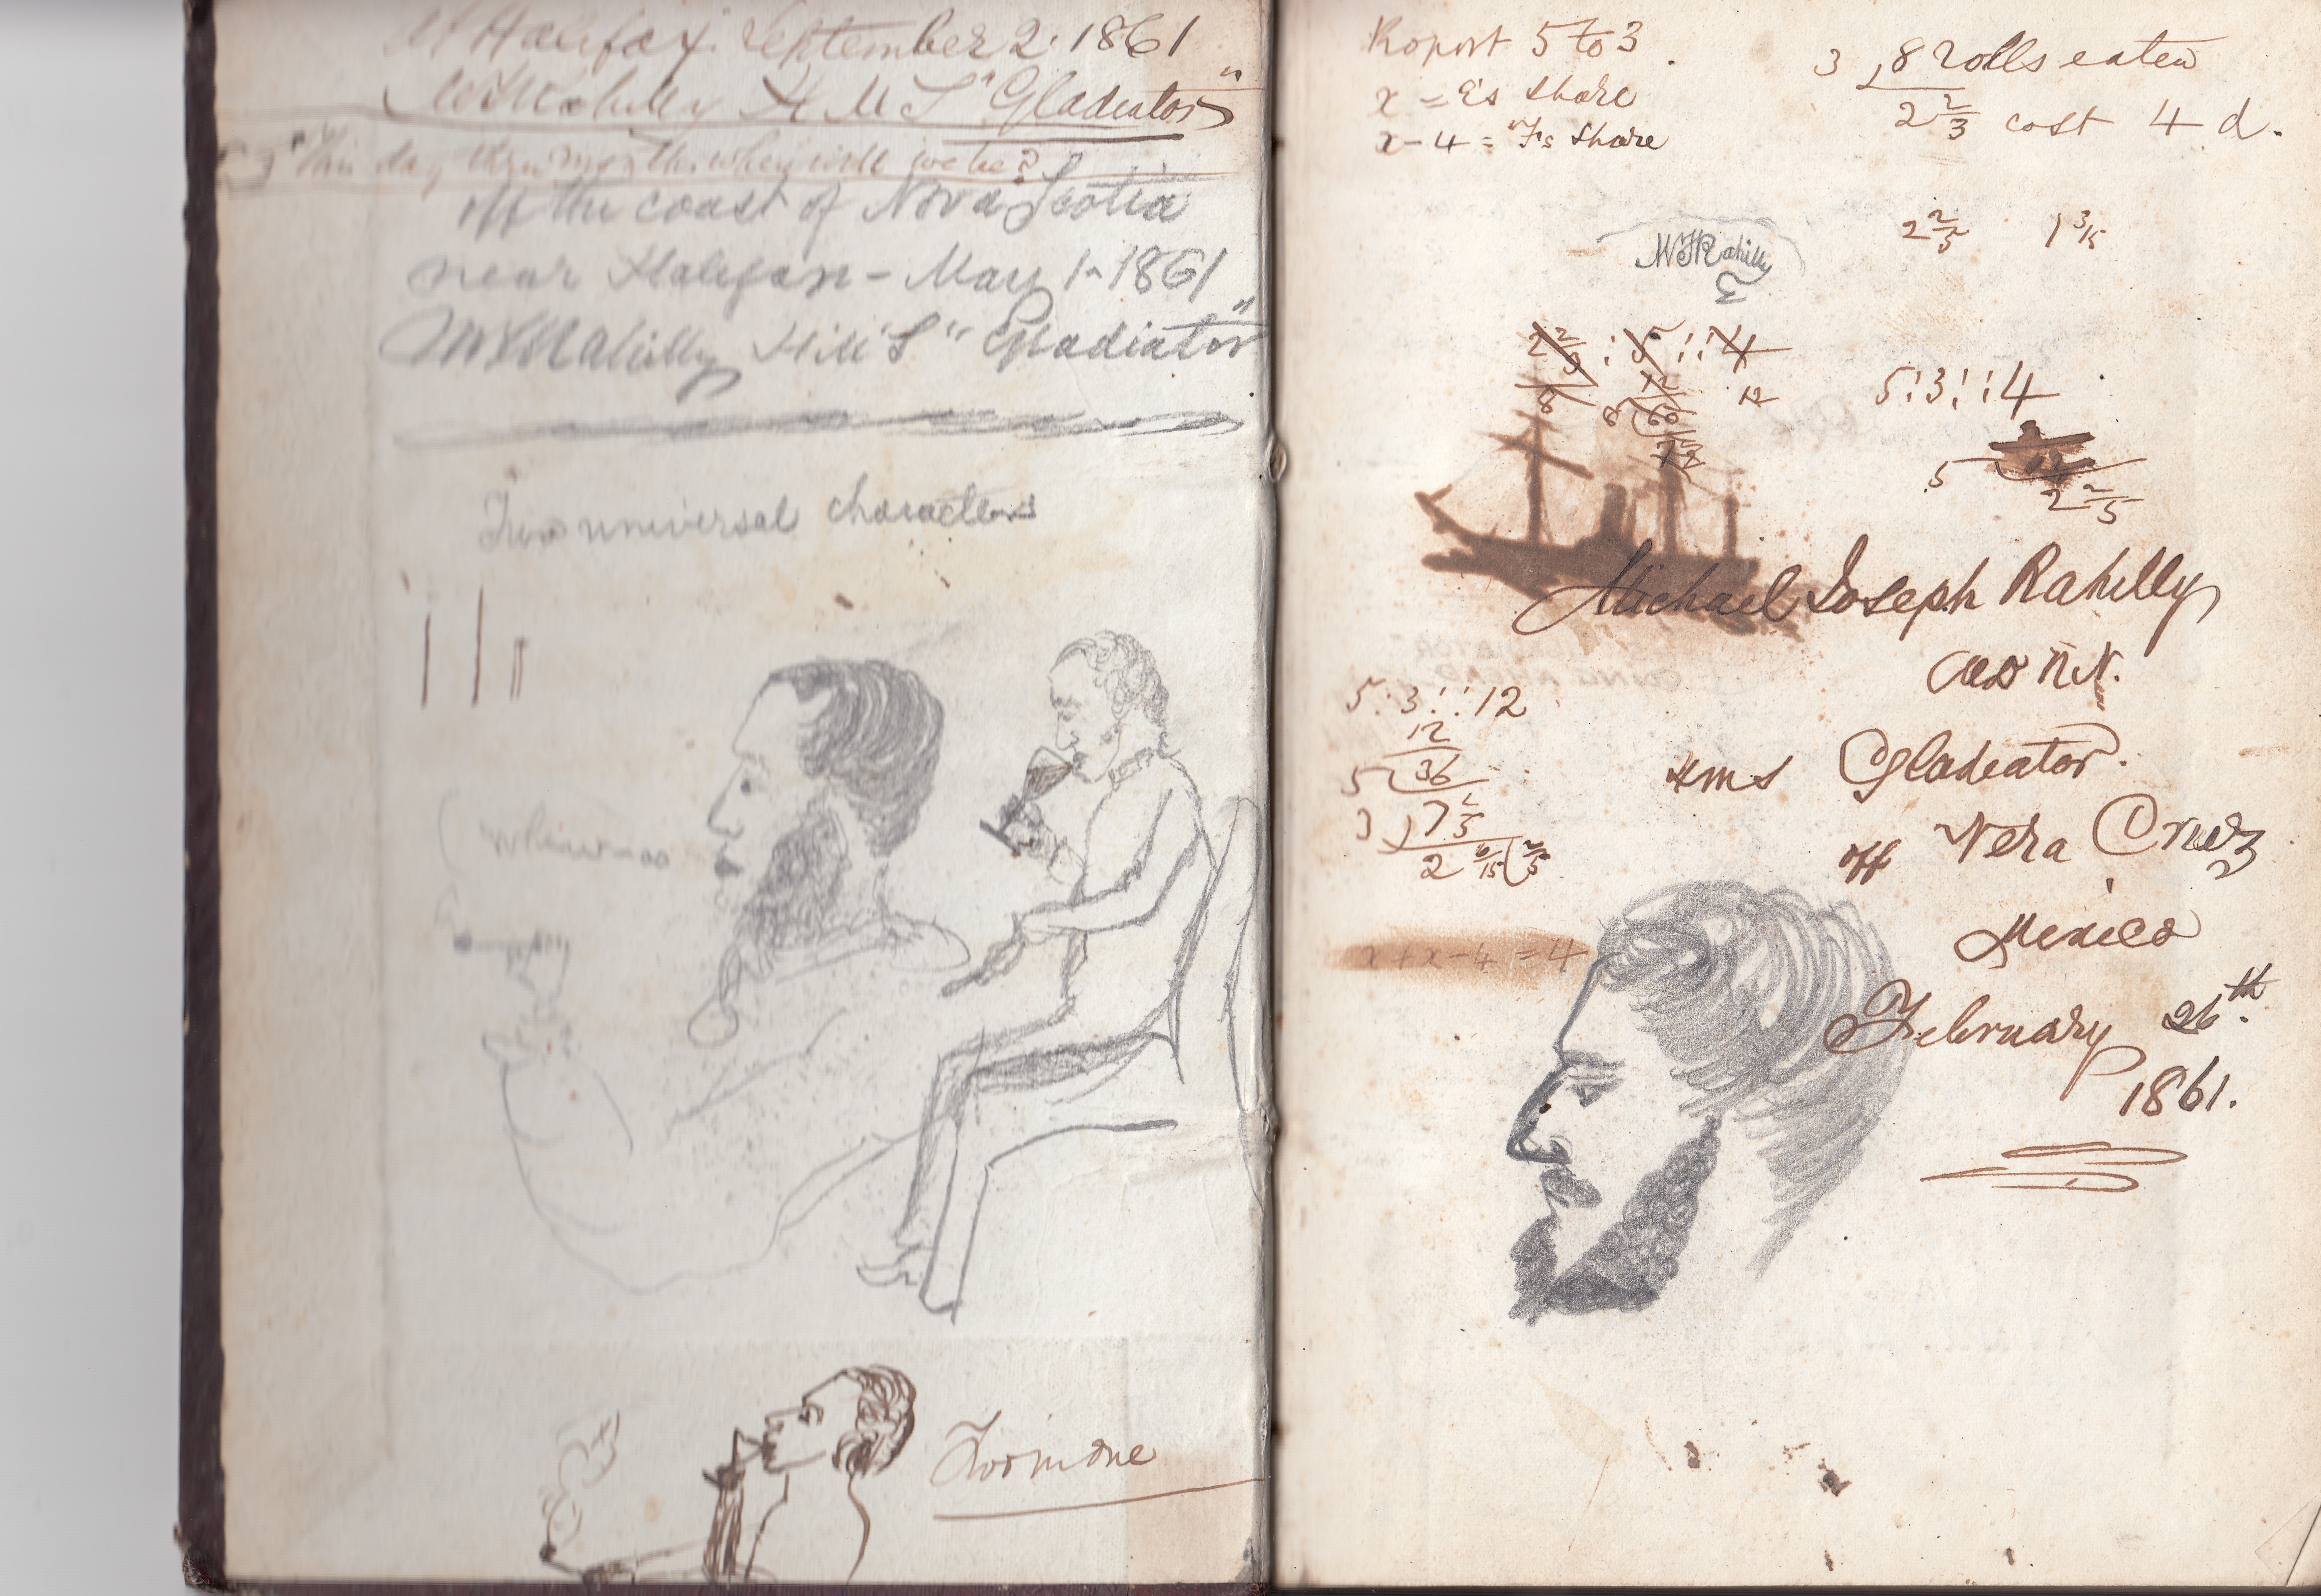 Halifax. September 2. 1861
WJRahilly H M S "Gladiator"
This day when will we be?
off the coast of Nova Scotia
near Halifax - May 1 - 1861
WJRahilly HMS "Gladiator"
Two universal characters
Two in one
5 to 3
x = E's share
x - 4 = Fs share
3 ) 8 rolls eaten
2 2/3 cost 4 d.
WJRahilly
2 2/5 1 3/15
2 2/3 : 5 :: 4
8 12 12
8 ( 60
7
5 : 3 :: 4
5 12
2 2/5
Michael Joseph Rahilly
R.N.
HMS Gladiator.
off Vera Cruz
Mexico
February 26th.
1861.
5 : 3 :: 12
12
5 ( 36
3 ) 7 1/5
2 6/15 ( 2/5
x + x - 4 = 4